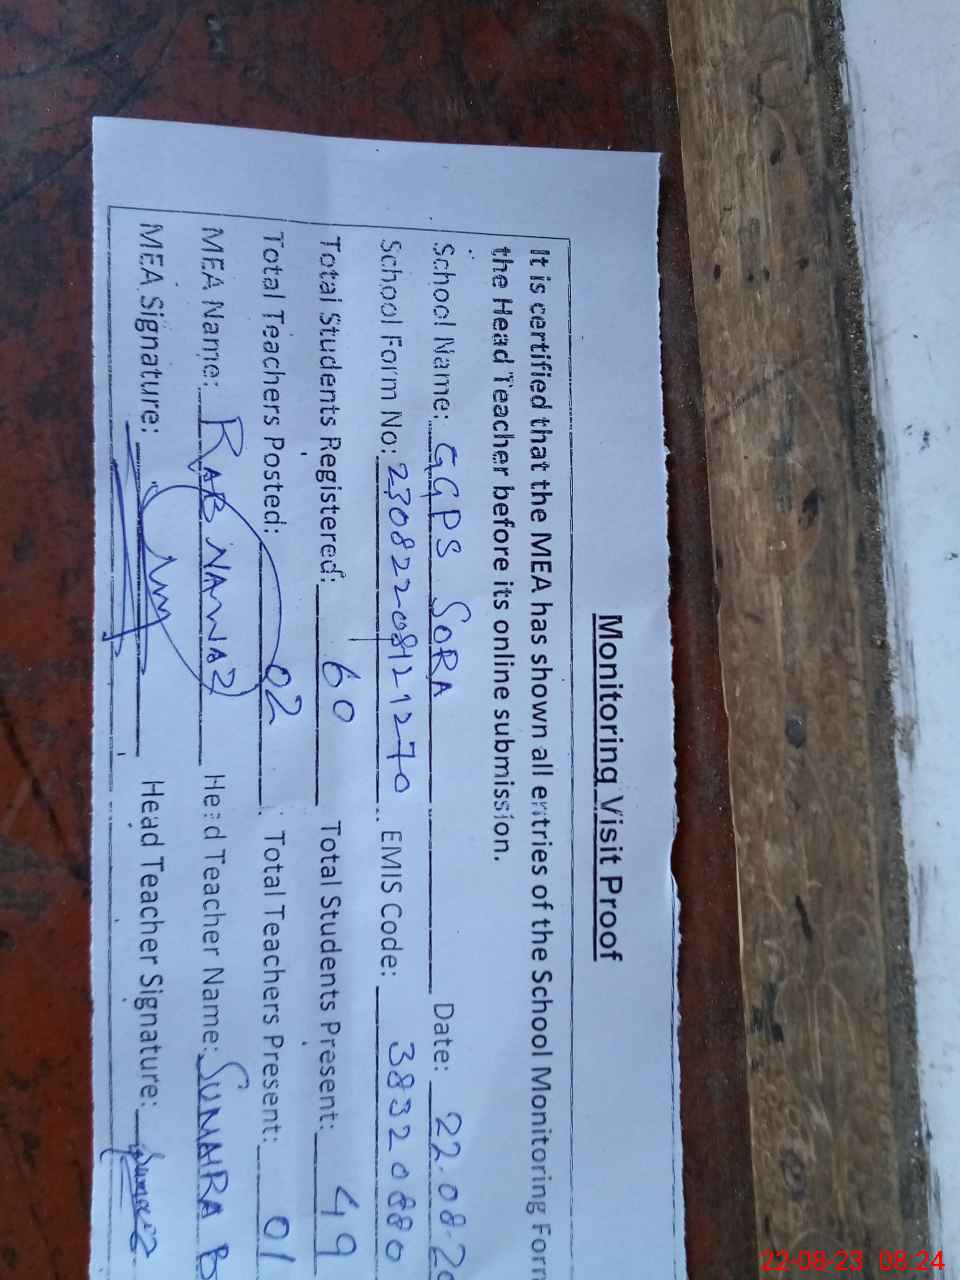 Monitoring Visit Proof
It is certified that the MEA has shown all entries of the School Monitoring Form
the Head Teacher before its online submission.
School Name: GGPS SORA Date: 22.08.20
School Form No: 23082208121270 EMIS Code: 38320880
Total Students Registered: 60 Total Students Present: 49
Total Teachers Posted: 02 Total Teachers Present: 01
MEA Name: RAB NAWAZ Head Teacher Name: SUMAIRA B
MEA Signature: Head Teacher Signature:
22-08-23 08:24